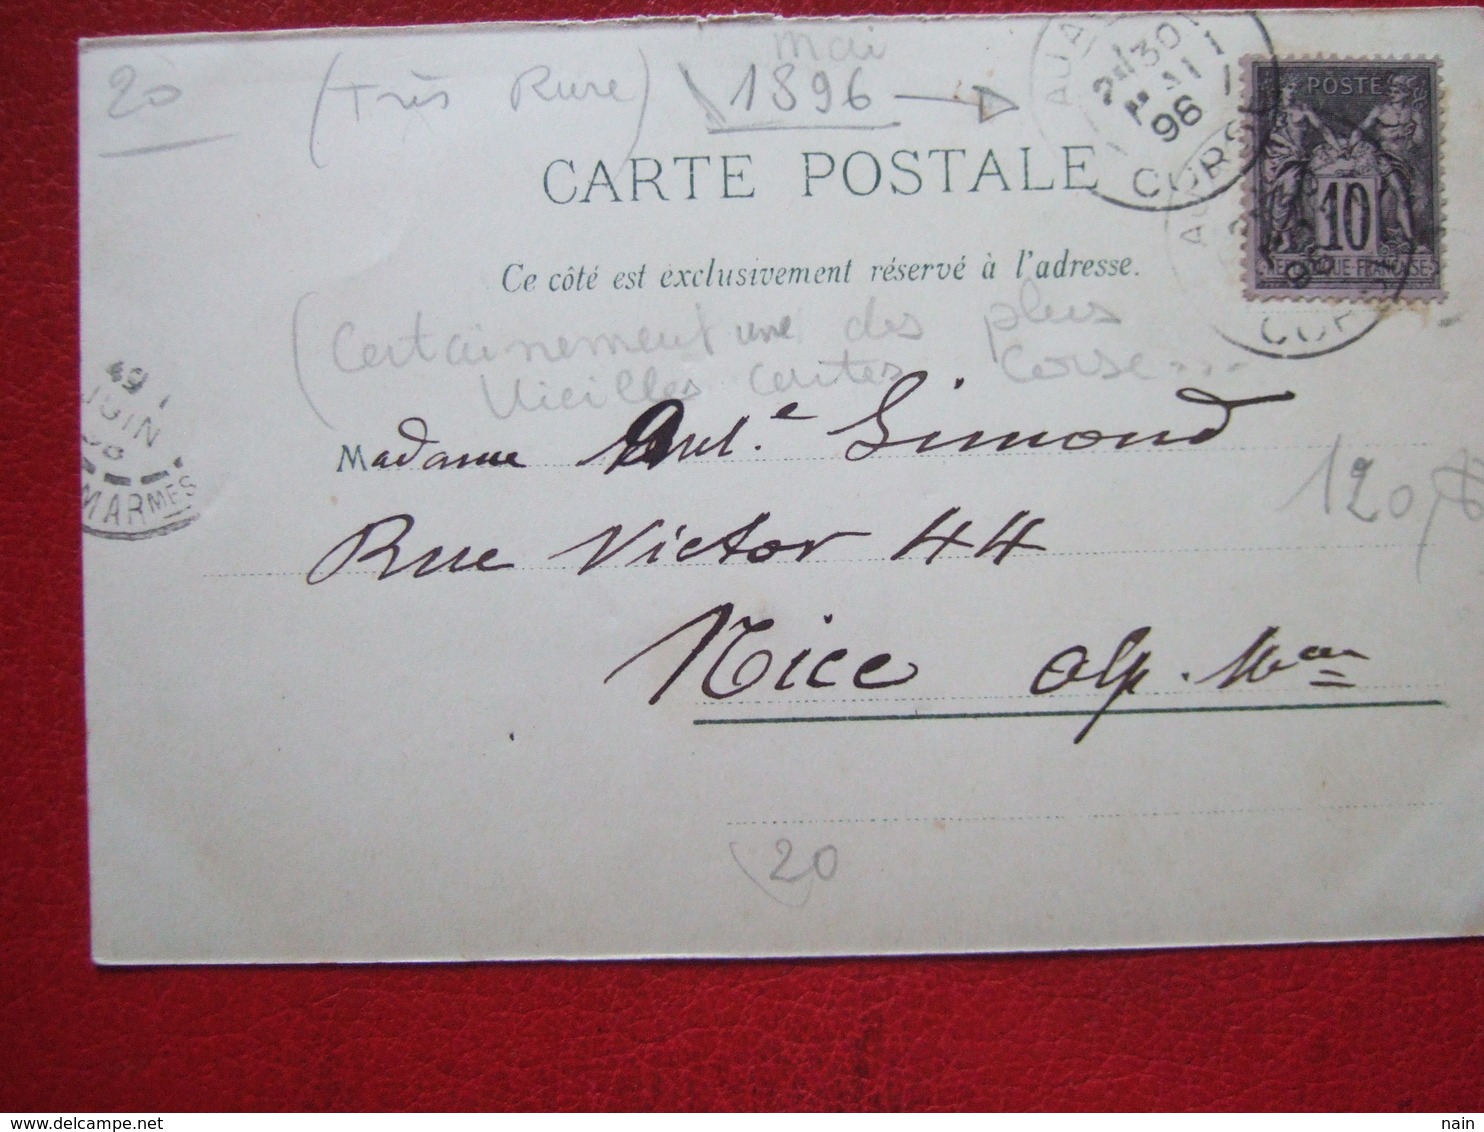 20
(Très Rare)
mai
1896
30
MAI
96
CORSE
POSTE
10
REPUBLIQUE FRANÇAISE
CARTE POSTALE
Ce côté est exclusivement réservé à l'adresse.
(Certainement une des plus
Vieilles cartes Corse...
JUIN
MARMES
Madame Simond
Rue Victor 44
120
Nice Alp. Mmes
20
nain
delcampe.net